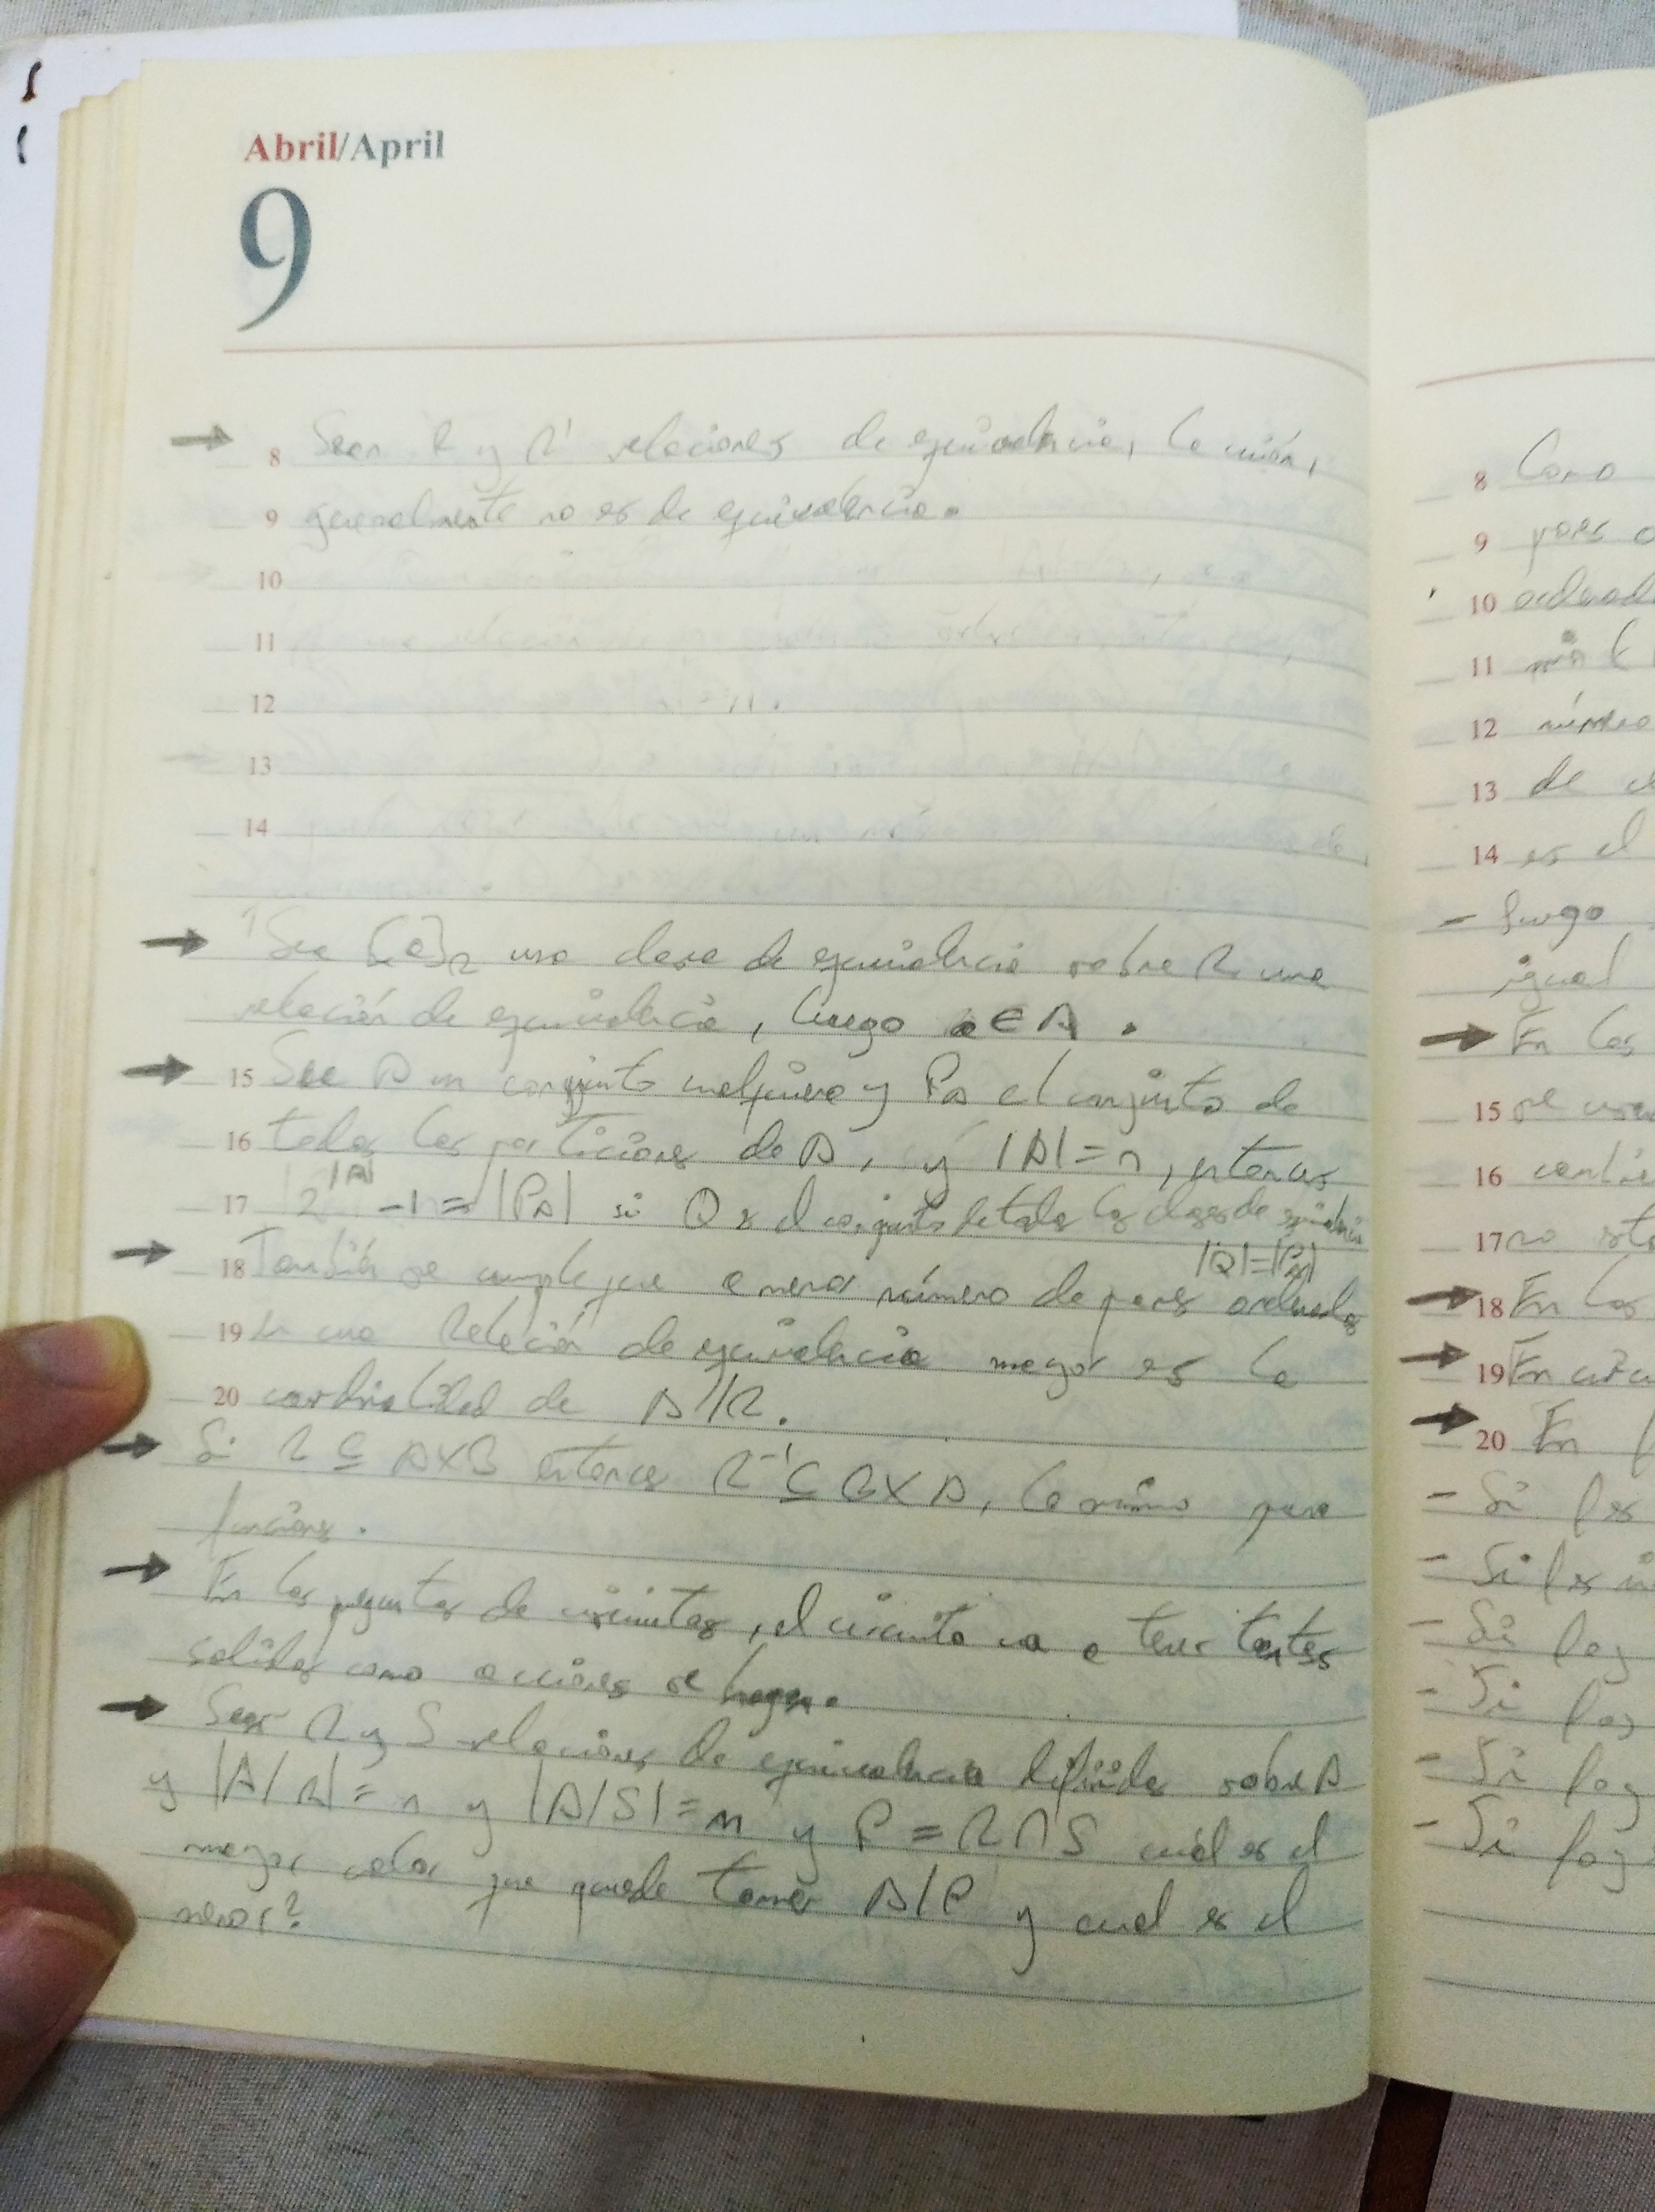 Abril/April
9
→ 8 Sean R y R' relaciones de equivalencia, la unión,
9 generalmente no es de equivalencia.
10
11
12
13
14
→ Sea [a]R una clase de equivalencia sobre R una
relación de equivalencia, luego a ∈ A.
→ 15 Sea A un conjunto cualquiera y PA el conjunto de
16 todas las particiones de A, y |A| = n, entonces
17 2^|A| -1 = |PA| si Q es el conjunto de todas las clases de equivalencia
|Q| = |PA|
→ 18 También se cumple que a menor número de pares ordenados
19 en una Relación de equivalencia mayor es la
20 cardinalidad de A/R.
→ Si R ⊆ A×B entonces R⁻¹ ⊆ B×A, lo mismo para
funciones.
→ En las preguntas de circuitos, el circuito va a tener tantas
salidas como acciones se hagan.
→ Sean R y S relaciones de equivalencia definidas sobre A
y |A/R| = n y |A/S| = m y P = R∩S cuál es el
mayor valor que puede tomar A/P y cual es el
menor?
8 Como
9 pares
10
11
12 número
13 de
14 es el
- luego
igual
→ En las
15 se
16
17 no
→ 18 En las
→ 19 En
→ 20 En
- Si f es
- Si f es
- Si fog
- Si fog
- Si fog
- Si fog